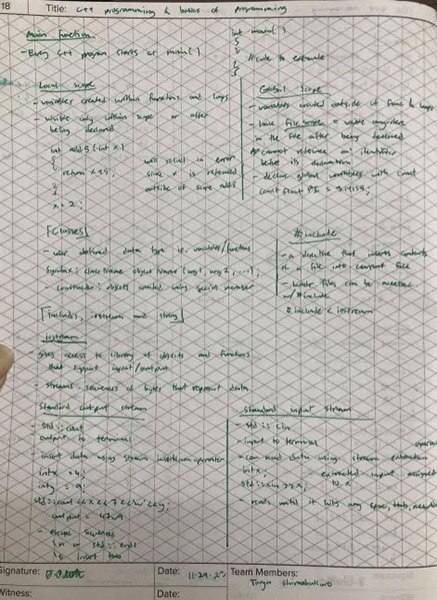 18
Title: C++ programming & basics of programming
Main function
- Every C++ program starts at main()
int main()
{
{
// code to execute
}
}
Local scope
- variables created within functions and loops
- visible only within scope or after
being declared
int add5(int x)
{
return x+5;
}
x = 2;
will result in error
since x is referenced
outside of scope add5
Global scope
- variables created outside of func & loops
- have file scope = visible anywhere
in the file after being declared
* cannot reference an identifier
before its declaration
- declare global variables with const
const float PI = 3.14159;
[Classes]
- user defined data type i.e. variables/functions
Syntax: className objectName (arg1, arg2, ...);
- constructor: objects created using special member
#include
- a directive that inserts contents
of a file into current file
- header files can be accessed
w/ #include
#include < iostream
[Includes, iostream and string]
iostream
- gives access to library of objects and functions
that support input/output
- streams: sequences of bytes that represent data
Standard output stream
- std::cout
output to terminal
- insert data using stream insertion operator
int x = 4;
int y = 9;
std::cout << x << 7 << 'w' << y;
output = 47w9
- escape sequences
\n or std::endl
\t insert tab
Standard input stream
- std::cin
- input to terminal
- can read data using stream extraction
operator
int x;
std::cin >> x;
extracted input assigned
to x
- reads until it hits any space, tab, newline
Signature:
Date: 11-29-22
Team Members:
Witness:
Date: